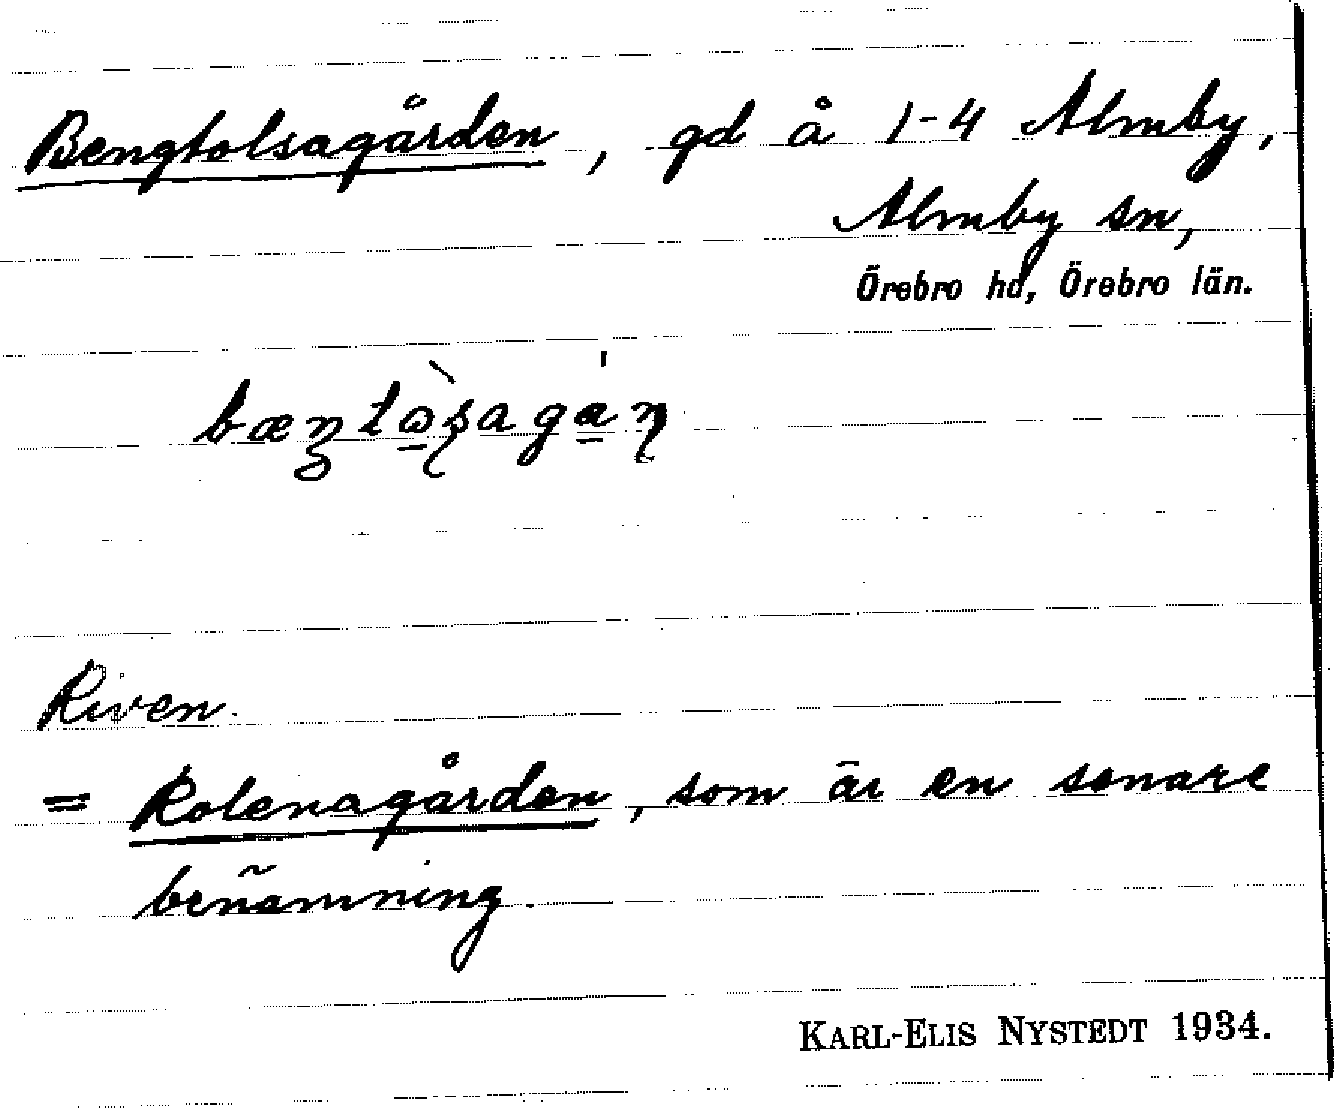 Bengtolsagården, gd å 1-4 Almby,
Almby sn,
Örebro hd, Örebro län.
Riven.
= Rolenagården, som är en senare
benämning.
KARL-ELIS NYSTEDT 1934.